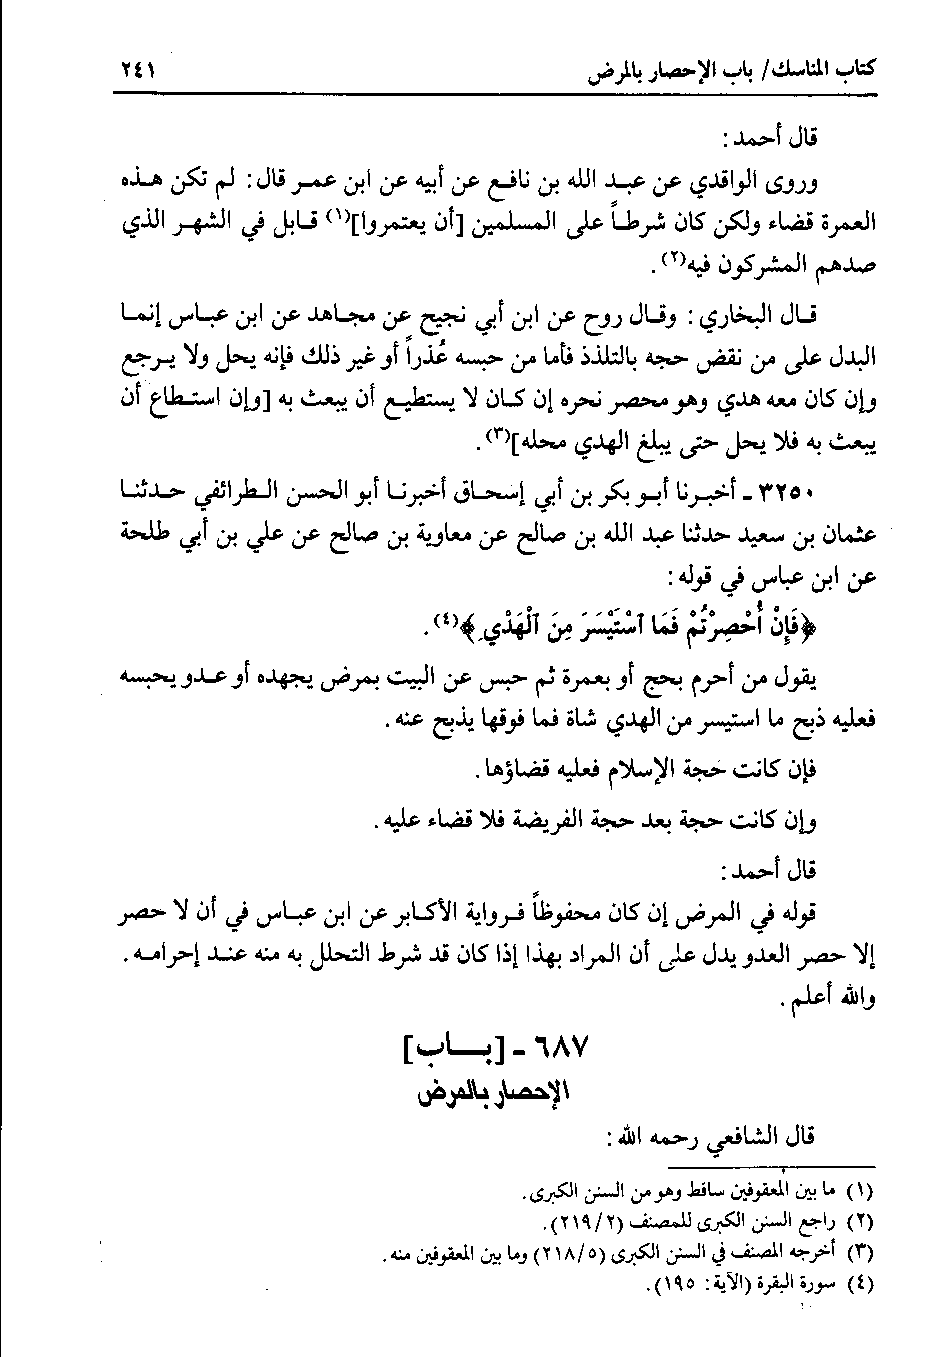 كتاب المناسك/ باب الإحصار بالمرض ٢٤١
قال أحمد :
وروى الواقدي عن عبد الله بن نافع عن أبيه عن ابن عمر قال : لم تكن هذه
العمرة قضاء ولكن كان شرطاً على المسلمين [أن يعتمروا](١) قابل في الشهر الذي
صدهم المشركون فيه(٢) .
قال البخاري : وقال روح عن ابن أبي نجيح عن مجاهد عن ابن عباس إنما
البدل على من نقض حجه بالتلذذ فأما من حبسه عُذراً أو غير ذلك فإنه يحل ولا يرجع
وإن كان معه هدي وهو محصر نحره إن كان لا يستطيع أن يبعث به [وإن استطاع أن
يبعث به فلا يحل حتى يبلغ الهدي محله](٣) .
٣٢٥٠ - أخبرنا أبو بكر بن أبي إسحاق أخبرنا أبو الحسن الطرائفي حدثنا
عثمان بن سعيد حدثنا عبد الله بن صالح عن معاوية بن صالح عن علي بن أبي طلحة
عن ابن عباس في قوله :
﴿فَإِنْ أُحْصِرْتُمْ فَمَا ٱسْتَيْسَرَ مِنَ ٱلْهَدْيِ﴾(٤) .
يقول من أحرم بحج أو بعمرة ثم حبس عن البيت بمرض يجهده أو عدو يحبسه
فعليه ذبح ما استيسر من الهدي شاة فما فوقها يذبح عنه .
فإن كانت حجة الإسلام فعليه قضاؤها .
وإن كانت حجة بعد حجة الفريضة فلا قضاء عليه .
قال أحمد :
قوله في المرض إن كان محفوظاً فرواية الأكابر عن ابن عباس في أن لا حصر
إلا حصر العدو يدل على أن المراد بهذا إذا كان قد شرط التحلل به منه عند إحرامه .
والله أعلم .
٦٨٧ - [باب]
الإحصار بالمرض
قال الشافعي رحمه الله :
(١) ما بين المعقوفين ساقط وهو من السنن الكبرى .
(٢) راجع السنن الكبرى للمصنف (٢١٩/٢) .
(٣) أخرجه المصنف في السنن الكبرى (٢١٨/٥) وما بين المعقوفين منه .
(٤) سورة البقرة (الآية : ١٩٥) .